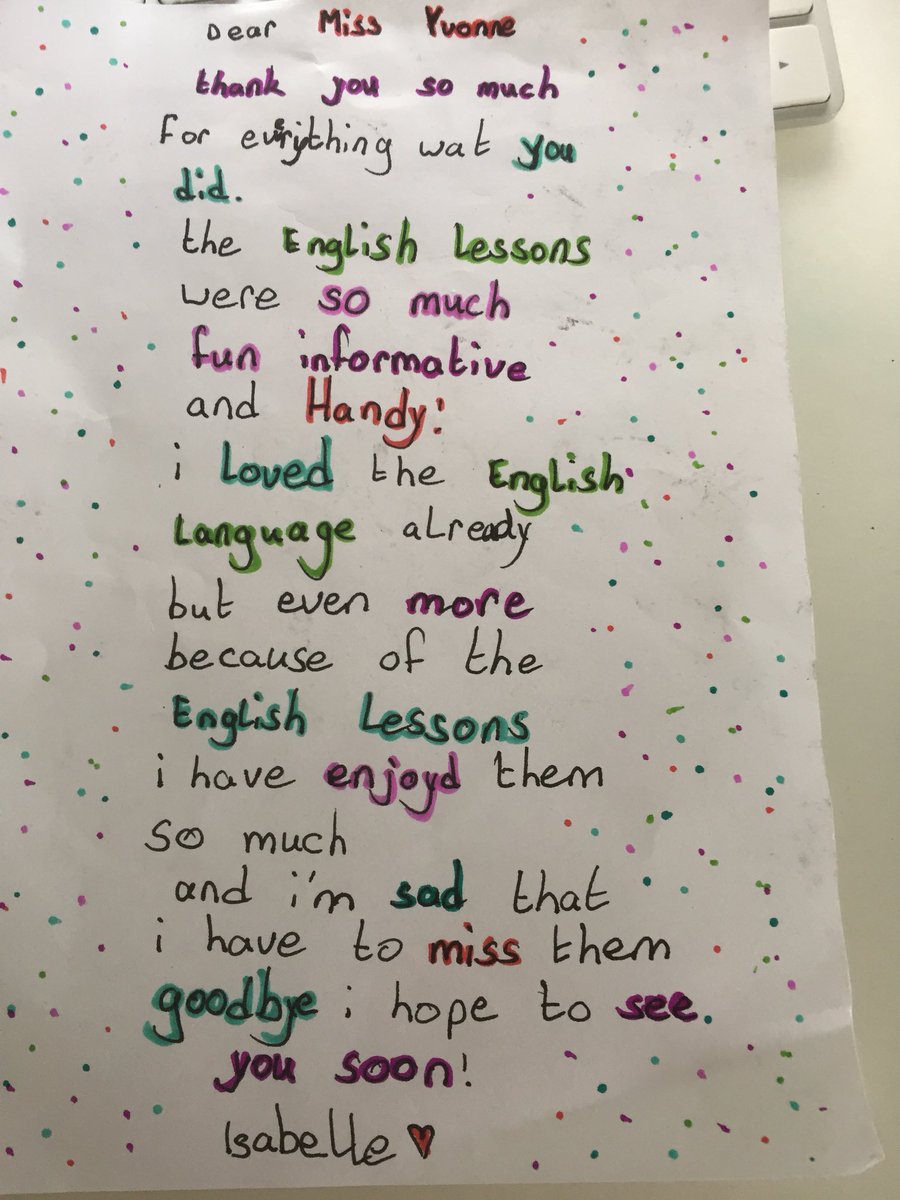 Dear Miss Yvonne
thank you so much
for evrything wat you
did.
the English Lessons
were so much
fun informative
and Handy!
i Loved the English
Language already
but even more
because of the
English Lessons
i have enjoyd them
so much
and i'm sad that
i have to miss them
goodbye i hope to see.
you soon!
Isabelle